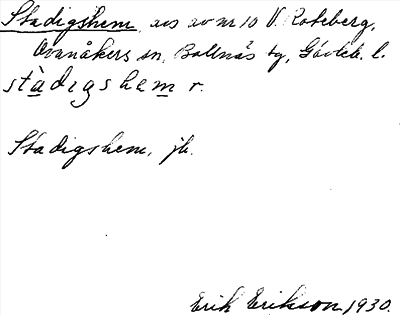 Stadigshem, avs av nr 10 V. Roteberg,
Ovanåkers sn, Bollnäs tg, Gävleb. l.
stàdıgshem r.
Stadigshem, jb.
Erik Erikson 1930.